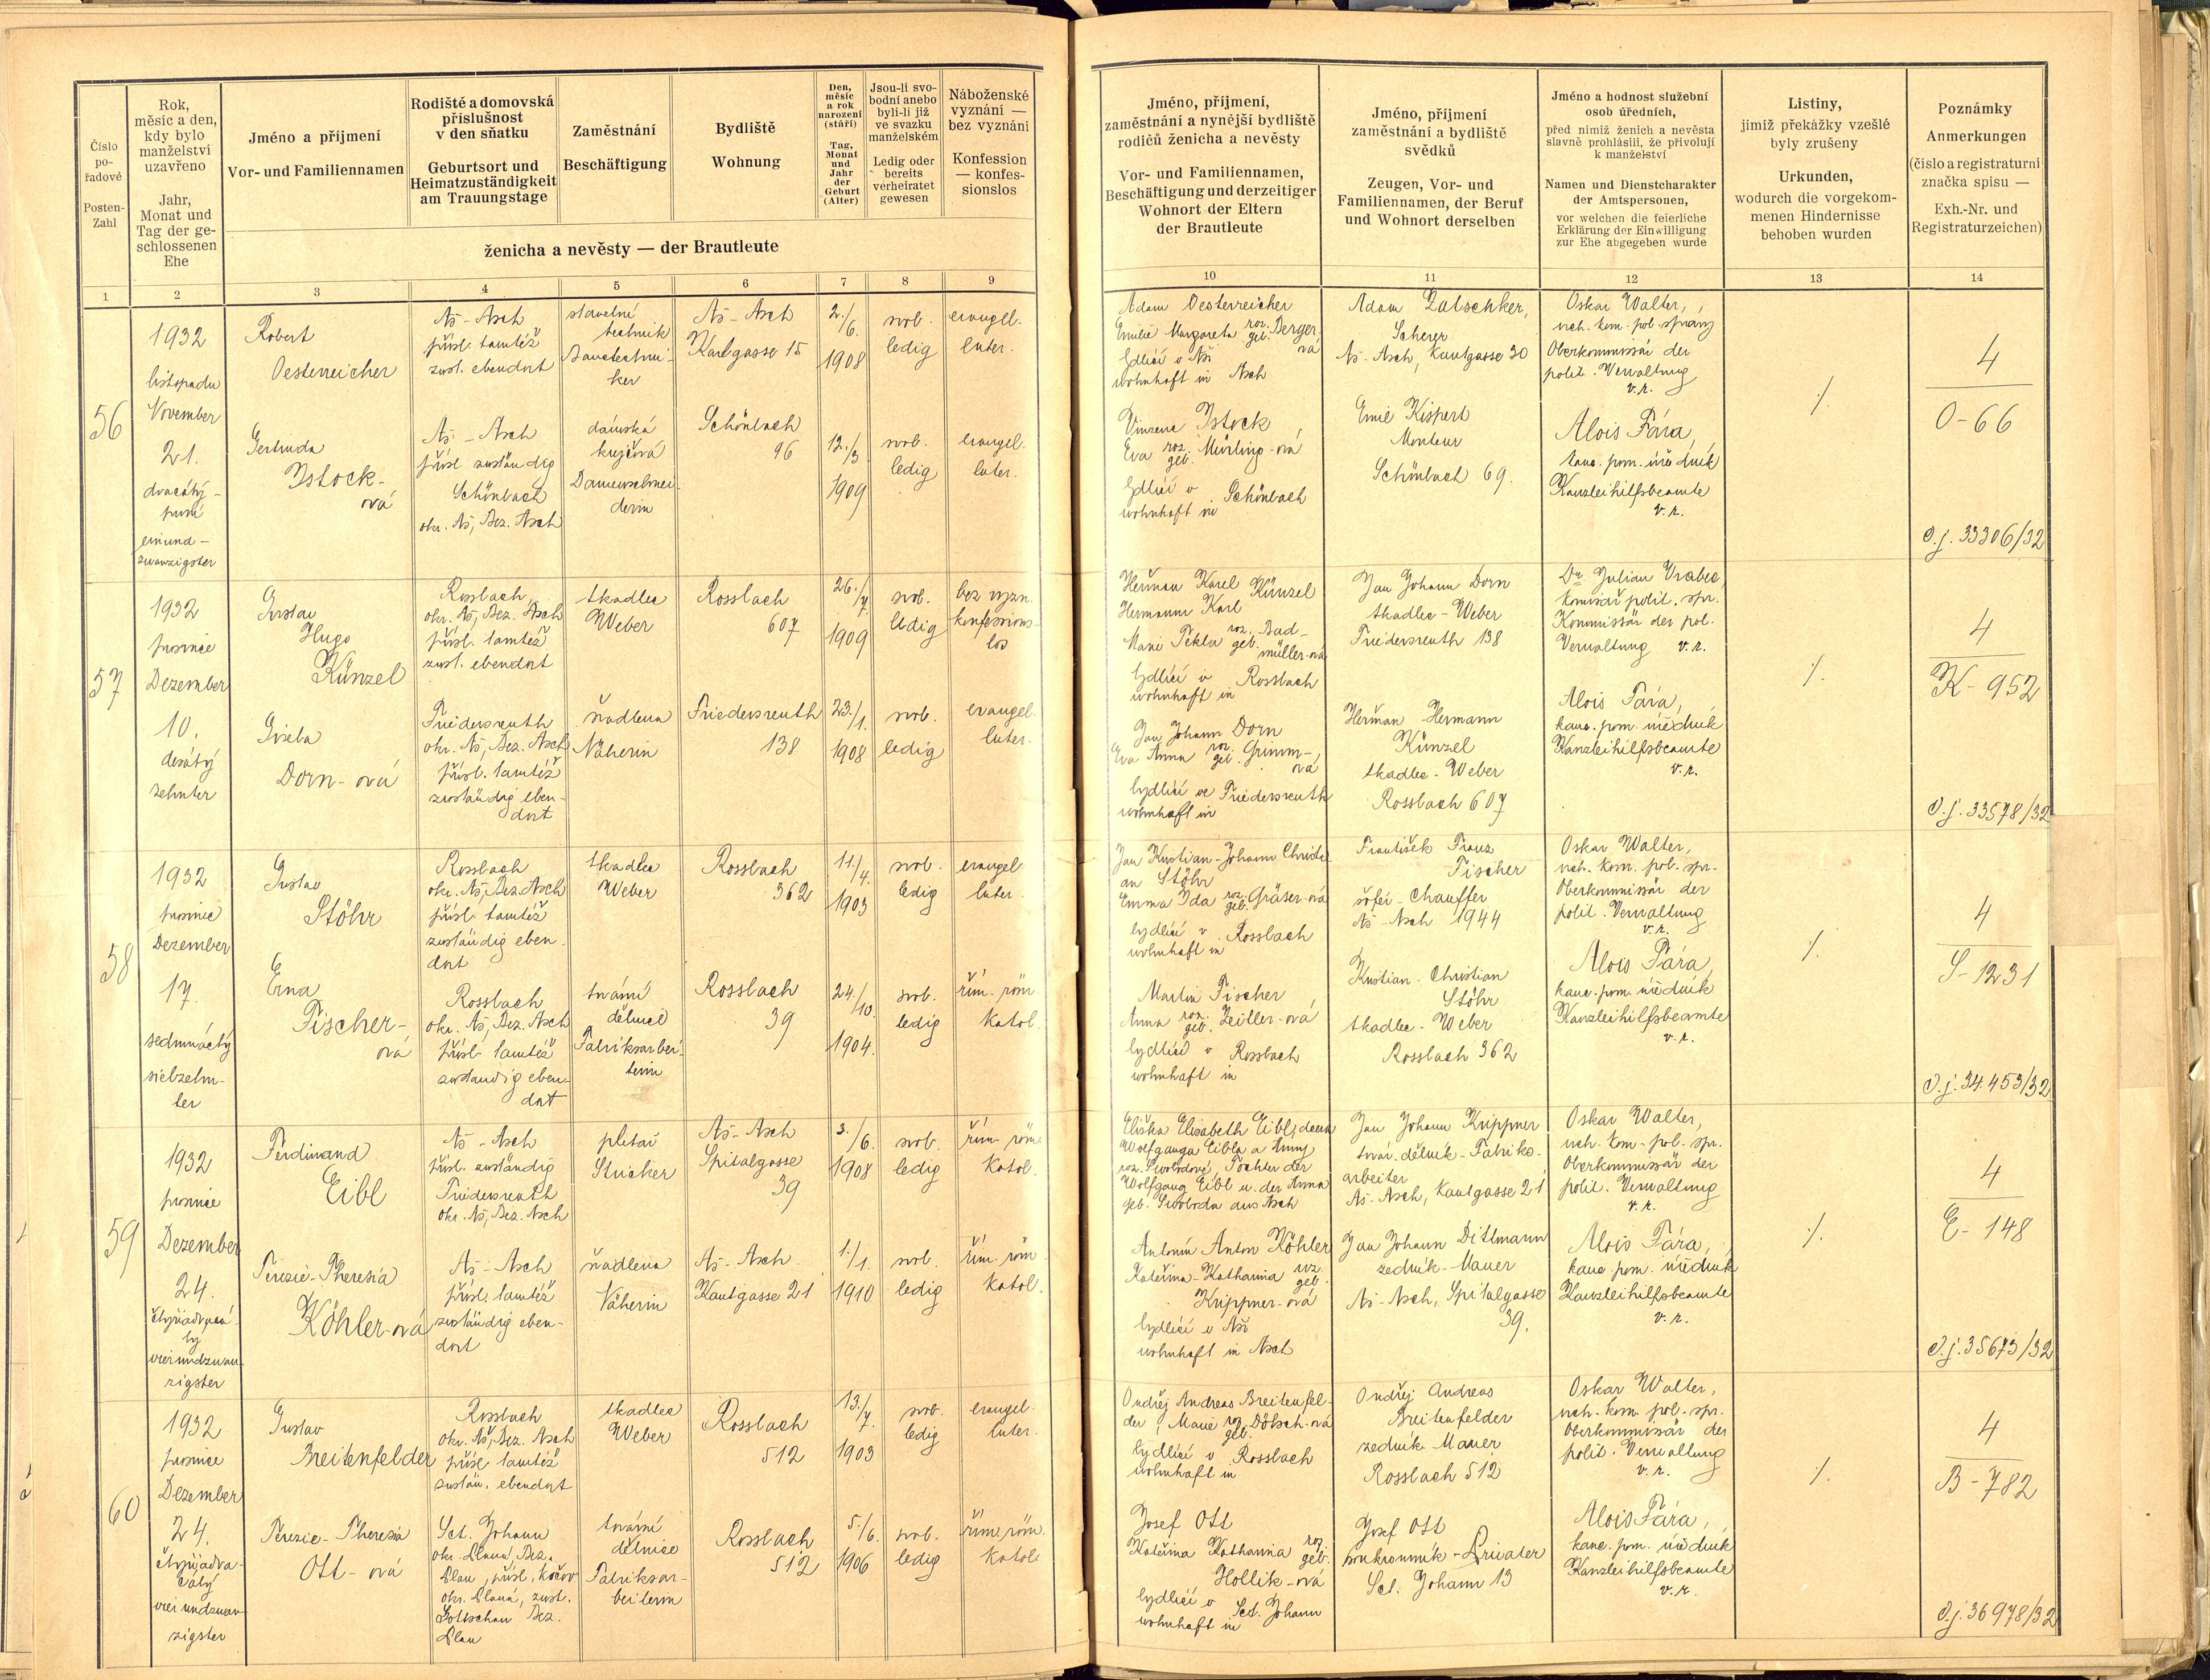 Číslo
po-
řadové
Posten-
Zahl
Rok,
měsíc a den,
kdy bylo
manželství
uzavřeno
Jahr,
Monat und
Tag der ge-
schlossenen
Ehe
Jméno a příjmení
Vor- und Familiennamen
Rodiště a domovská
příslušnost
v den sňatku
Geburtsort und
Heimatzuständigkeit
am Trauungstage
Zaměstnání
Beschäftigung
Bydliště
Wohnung
Den,
měsíc
a rok
narození
(stáří)
Tag,
Monat
und
Jahr
der
Geburt
(Alter)
Jsou-li svo-
bodní anebo
byli-li již
ve svazku
manželském
Ledig oder
bereits
verheiratet
gewesen
Náboženské
vyznání —
bez vyznání
Konfession
— konfes-
sionslos
ženicha a nevěsty — der Brautleute
Jméno, příjmení,
zaměstnání a nynější bydliště
rodičů ženicha a nevěsty
Vor- und Familiennamen,
Beschäftigung und derzeitiger
Wohnort der Eltern
der Brautleute
Jméno, příjmení
zaměstnání a bydliště
svědků
Zeugen, Vor- und
Familiennamen, der Beruf
und Wohnort derselben
Jméno a hodnost služební
osob úředních,
před nimiž ženich a nevěsta
slavně prohlásili, že přivolují
k manželství
Namen und Dienstcharakter
der Amtspersonen,
vor welchen die feierliche
Erklärung der Einwilligung
zur Ehe abgegeben wurde
Listiny,
jimiž překážky vzešlé
byly zrušeny
Urkunden,
wodurch die vorgekom-
menen Hindernisse
behoben wurden
Poznámky
Anmerkungen
(číslo a registraturní
značka spisu —
Exh.-Nr. und
Registraturzeichen)
1 2 3 4 5 6 7 8 9 10 11 12 13 14
56
1932
listopadu
November
21.
dvacátý-
první
einund-
zwanzigster
Robert
Oesterreicher
Aš - Asch
přísl. tamtéž
zust. ebendort
stavební
technik
Bautechni-
ker
Aš - Asch
Karlgasse 15
2./6.
1908
svob.
ledig
evangel.
luter.
Gertruda
Istock-
ová
Aš - Asch
přísl. zuständig
Schönbach
okr. Aš, Bez. Asch
dámská
krejčová
Damenschnei-
derin
Schönbach
96
12./3.
1909
svob.
ledig
evangel.
luter.
Adam Oesterreicher
Emilie Margareta roz. geb. Berger-
ová
bydlící v Aši
wohnhaft in Asch
Vinzenz Istock,
Eva roz. geb. Mürling-ová
bydlící v
wohnhaft in Schönbach
Adam Latschker,
Scherer
Aš - Asch, Kantgasse 30
Emil Kispert
Monteur
Schönbach 69.
Oskar Walter,
vrch. kom. pol. správy
Oberkommissär der
polit. Verwaltung
v. r.
Alois Fára,
kanc. pom. úředník
Kanzleihilfsbeamte
v. r.
./.
4
O - 66
d.j. 33306/32
57
1932
prosince
Dezember
10.
desátý
zehnter
Gustav
Hugo
Künzel
Rossbach
okr. Aš, Bez. Asch
přísl. tamtéž
zust. ebendort
tkadlec
Weber
Rossbach
607
26./7.
1909
svob.
ledig
bez vyzn.
konfessions-
los
Gisela
Dorn-ová
Friedersreuth
okr. Aš, Bez. Asch
přísl. tamtéž
zuständig eben-
dort
švadlena
Näherin
Friedersreuth
138
23./1.
1908
svob.
ledig
evangel.
luter.
Heřman Karel Künzel
Hermann Karl
Marie Tekla roz. geb. Bad-
müller-ová
bydlící v Rossbach
wohnhaft in
Jan Johann Dorn
Eva Anna roz. geb. Grimm-
ová
bydlící ve Friedersreuth
wohnhaft in
Jan Johann Dorn
tkadlec - Weber
Friedersreuth 138
Heřman Hermann
Künzel
tkadlec - Weber
Rossbach 607
Dr. Julian Vrabec,
komisař polit. spr.
Kommissär der pol.
Verwaltung v. r.
Alois Fára,
kanc. pom. úředník
Kanzleihilfsbeamte
v. r.
./.
4
K - 952
d.j. 33578/32
58
1932
prosince
Dezember
17.
sedmnáctý
siebzehn-
ter
Gustav
Stöhr
Rossbach
okr. Aš, Bez. Asch
přísl. tamtéž
zuständig eben-
dort
tkadlec
Weber
Rossbach
362
11./4.
1903
svob.
ledig
evangel.
luter.
Erna
Fischer-
ová
Rossbach
okr. Aš, Bez. Asch
přísl. tamtéž
zuständig eben-
dort
tovární
dělnice
Fabriksarbei-
terin
Rossbach
39
24./10.
1904.
svob.
ledig
řím. röm.
katol.
Jan Kristian - Johann Christi-
an Stöhr
Emma Ida roz. geb. Gräser-ová
bydlící v Rossbach
wohnhaft in
Martin Fischer
Anna roz. geb. Zeitler-ová
bydlící v Rossbach
wohnhaft in
František Franz
Fischer
šofér - Chauffer
Aš - Asch 1944
Kristian - Christian
Stöhr
tkadlec - Weber
Rossbach 362
Oskar Walter,
vrch. kom. pol. spr.
Oberkommissär der
polit. Verwaltung
v. r.
Alois Fára,
kanc. pom. úředník
Kanzleihilfsbeamte
v. r.
./.
4
S - 1231
d.j. 34453/32
59
1932
prosince
Dezember
24.
vierundzwan-
zigster
Ferdinand
Eibl
Aš - Asch
přísl. zuständig
Friedersreuth
okr. Aš, Bez. Asch
pletař
Stricker
Aš - Asch
Spitalgasse
39
3./6.
1908
svob.
ledig
řím. röm.
katol.
Terezie - Theresia
Köhler-ová
Aš - Asch
přísl. tamtéž
zuständig eben-
dort
švadlena
Näherin
Aš - Asch
Kantgasse 21
1./1.
1910
svob.
ledig
řím. röm.
katol.
Eliška Elisabeth Eibl, dcera
Wolfganga Eibla a Anny
roz. Swobodové, Tochter der
Wolfgang Eibl u. der Anna
geb. Swoboda aus Asch
Antonín Anton Köhler
Kateřina - Katharina roz. geb.
Krippner-ová
bydlící v Aši
wohnhaft in Asch
Jan Johann Krippner
tovar. dělník - Fabriks-
arbeiter
Aš - Asch, Kantgasse 21
Jan Johann Dittmann
zedník - Maurer
Aš - Asch, Spitalgasse
39.
Oskar Walter,
vrch. kom. pol. spr.
Oberkommissär der
polit. Verwaltung
v. r.
Alois Fára,
kanc. pom. úředník
Kanzleihilfsbeamte
v. r.
./.
4
E - 148
d.j. 35673/32
60
1932
prosince
Dezember
24.
čtyřiadva-
cátý
vierundzwan-
zigster
Gustav
Breitenfelder
Rossbach
okr. Aš, Bez. Asch
přísl. tamtéž
zustän. ebendort
tkadlec
Weber
Rossbach
512
13./7.
1903
svob.
ledig
evangel.
luter.
Terezie - Theresia
Ott-ová
Sct. Johann
okr. Planá, Bez.
Plan, přísl. Kočov
okr. Planá, zust.
Gottschau Bez.
Plan
tovární
dělnice
Fabriksar-
beiterin
Rossbach
512
5./6.
1906
svob.
ledig
řím. röm.
katol.
Ondřej Andreas Breitenfel-
der, Marie roz. geb. Dötsch-ová
bydlící v Rossbach
wohnhaft in
Josef Ott
Kateřina Katharina roz. geb.
Hollik-ová
bydlící v Sct. Johann
wohnhaft in
Ondřej Andreas
Breitenfelder
zedník Maurer
Rossbach 512
Josef Ott
soukromník - Privater
Sct. Johann 13
Oskar Walter,
vrch. kom. pol. spr.
Oberkommissär der
polit. Verwaltung
v. r.
Alois Fára,
kanc. pom. úředník
Kanzleihilfsbeamte
v. r.
./.
4
B - 782
d.j. 36978/32